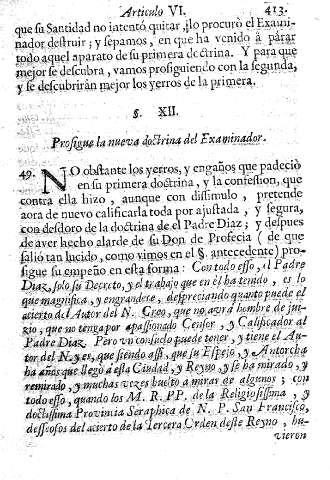 Articulo VI. 413.
que su Santidad no intentó quitar, lo procuró el Exami-
nador destruir; y sepamos, en que ha venido à parar
todo aquel aparato de su primera doctrina. Y para que
mejor se descubra, vamos prosiguiendo con la segunda,
y se descubrirán mejor los yerros de la primera.
§. XII.
Prosigue la nueva doctrina del Examinador.
49. NO obstante los yerros, y engaños que padeciò
en su primera doctrina, y la confession, que
contra ella hizo, aunque con dissimulo, pretende
aora de nuevo calificarla toda por ajustada, y segura,
con desdoro de la doctrina de el Padre Diaz; y despues
de aver hecho alarde de su Don de Profecia (de que
saliò tan lucido, como vimos en el §. antecedente) pro-
sigue su empeño en esta forma: Con todo esso, el Padre
Diaz, solo su Decreto, y el trabajo que en èl ha tenido, es lo
que magnifica, y engrandece, despreciando quanto puede el
acierto del Autor del N. Creo, que no avrà hombre de jui-
zio, que no tenga por apassionado Censor, y Calificador al
Padre Diaz. Pero un consuelo puede tener, y tiene el Au-
tor del N. y es, que siendo assi, que su Espejo, y Antorcha
ha años que llegò à esta Ciudad, y Reyno, y se ha mirado, y
remirado, y muchas vezes buelto à mirar de algunos; con
todo esso, quando los M. R. PP. de la Religiosissima, y
doctissima Provincia Seraphica de N. P. San Francisco,
desseosos del acierto de la Tercera Orden deste Reyno, hu-
vieron